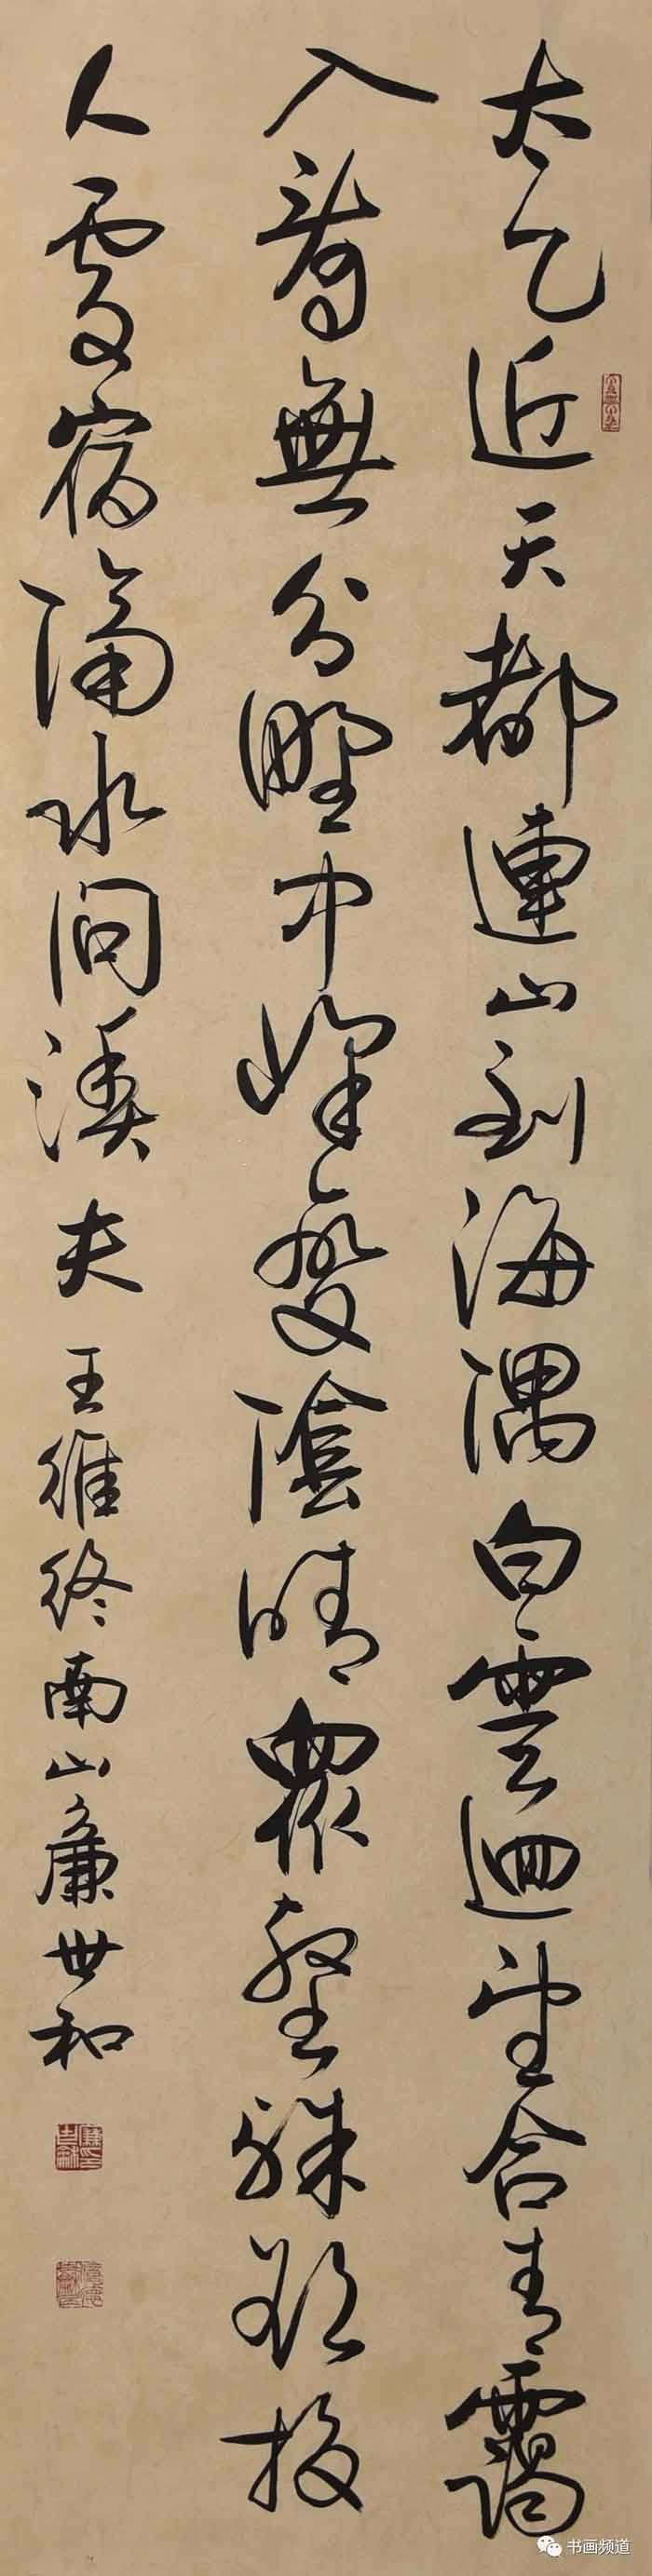 太乙近天都連山到海隅白雲迴望合青靄
入看無分野中峰變陰晴衆壑殊欲投
人處宿隔水問溪夫
王維終南山廉世和
书画频道